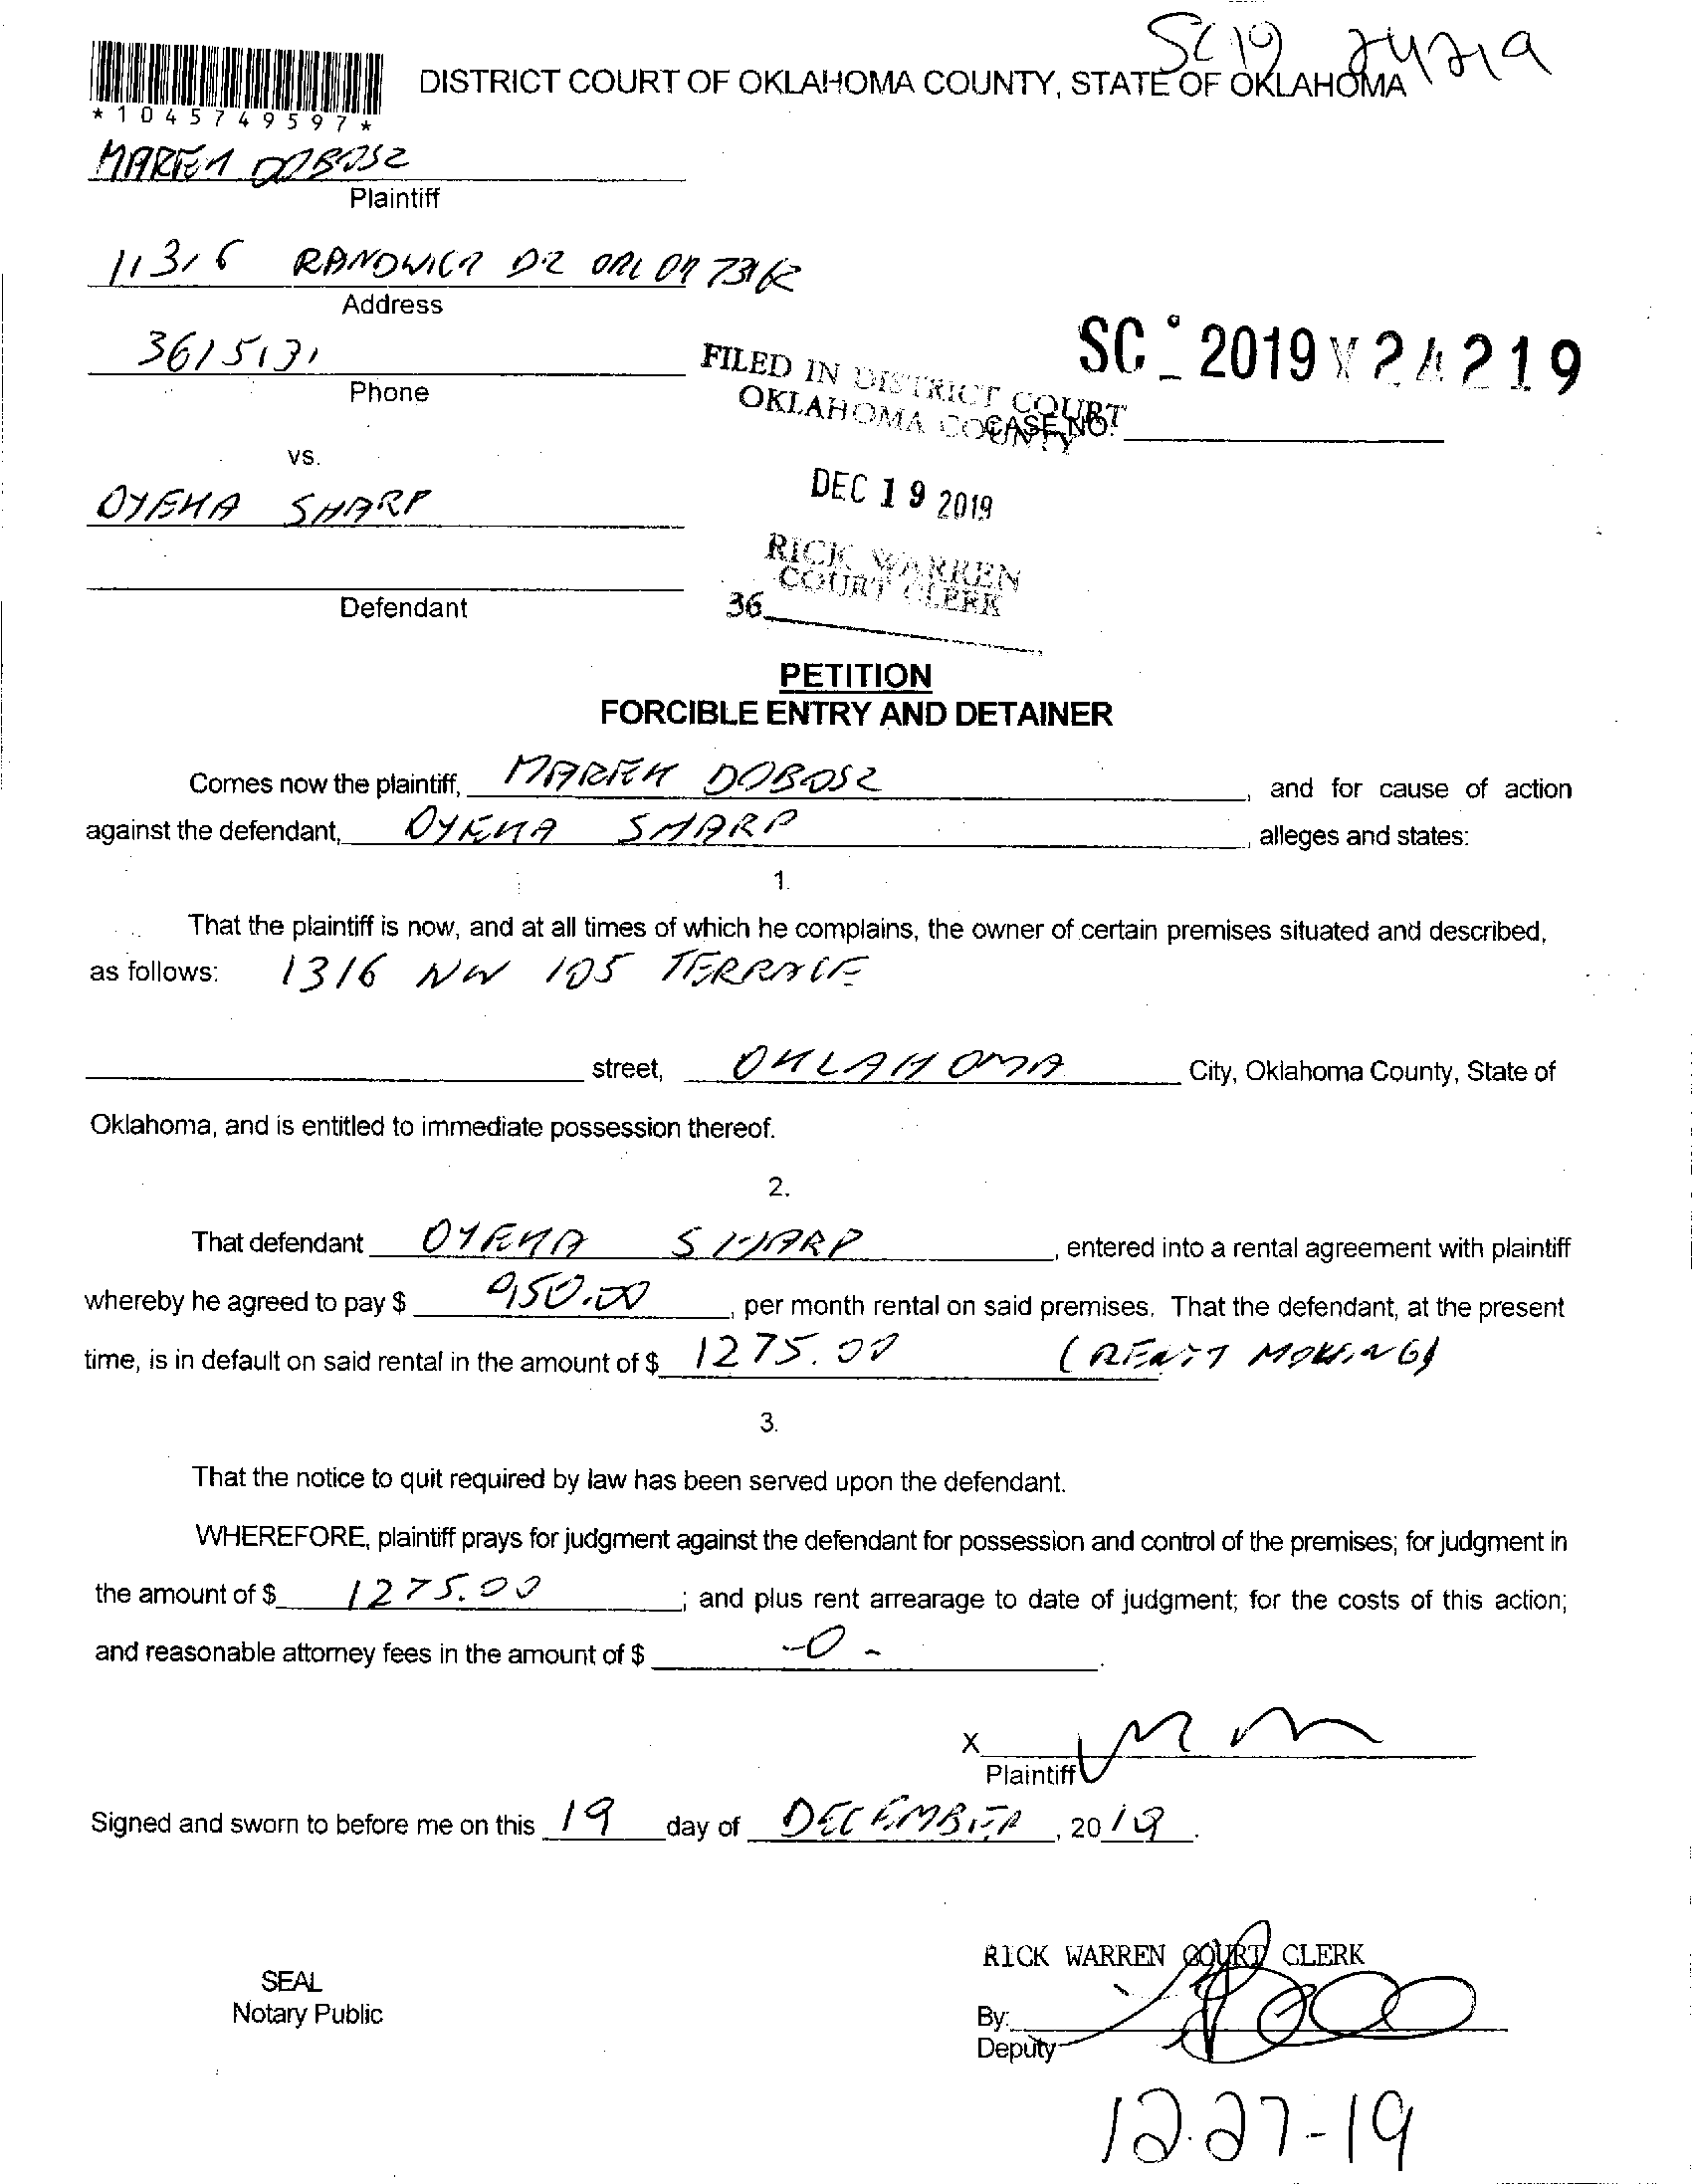 SC 19 24219
DISTRICT COURT OF OKLAHOMA COUNTY, STATE OF OKLAHOMA
*1045749597*
MAREK DOBOSZ
Plaintiff
11316 RANDWICK DR
Address
3615131
Phone
SC - 2019 24219
FILED IN DISTRICT COURT
OKLAHOMA COUNTY
CASE NO.
vs.
OYEMA SHARP
DEC 19 2019
RICK WARREN
COURT CLERK
36
Defendant
PETITION
FORCIBLE ENTRY AND DETAINER
Comes now the plaintiff, MAREK DOBOSZ, and for cause of action
against the defendant, OYEMA SHARP, alleges and states:
1.
That the plaintiff is now, and at all times of which he complains, the owner of certain premises situated and described,
as follows: 1316 NW 105 TERRACE
street, OKLAHOMA City, Oklahoma County, State of
Oklahoma, and is entitled to immediate possession thereof.
2.
That defendant OYEMA SHARP, entered into a rental agreement with plaintiff
whereby he agreed to pay $ 950.00, per month rental on said premises. That the defendant, at the present
time, is in default on said rental in the amount of $ 1275.00
3.
That the notice to quit required by law has been served upon the defendant.
WHEREFORE, plaintiff prays for judgment against the defendant for possession and control of the premises; for judgment in
the amount of $ 1275.00; and plus rent arrearage to date of judgment; for the costs of this action;
and reasonable attorney fees in the amount of $ -0-.
X
Plaintiff
Signed and sworn to before me on this 19 day of DECEMBER, 2019.
RICK WARREN COURT CLERK
SEAL
Notary Public
By:
Deputy
12-27-19